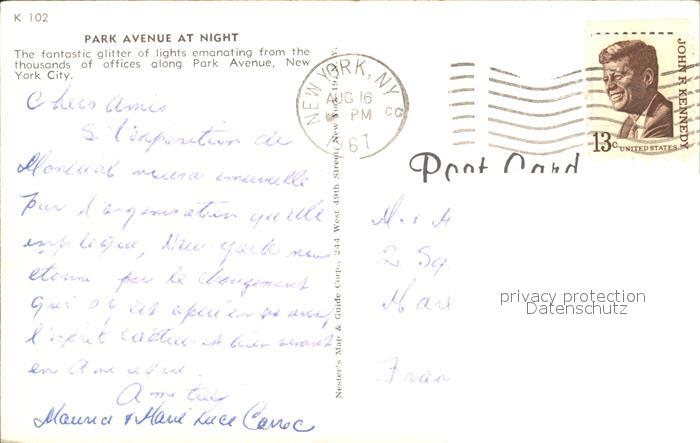 K 102
PARK AVENUE AT NIGHT
The fantastic glitter of lights emanating from the
thousands of offices along Park Avenue, New
York City.
Chers amis
Si l'exposition de
Montréal nous a émerveillé
par l'organisation qu'elle
implique, New-York nous
étonne par le changement
qui s'y est opéré en
l'esprit est bien vivant
en Amérique.
Amitiés
Maurice & Marie Luce
NEW YORK, N.Y.
AUG 16
PM
67
Nester's Map & Guide Corp., 244 West 49th Street, New York 19, N.Y.
JOHN F. KENNEDY
13c UNITED STATES
Post Card
M. &
2 Sq.
privacy protection
Datenschutz
Fran